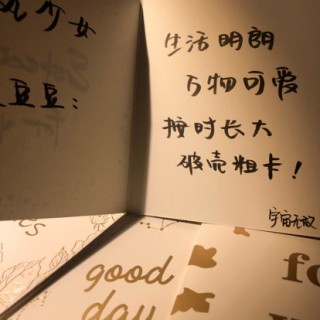 少女
豆豆：
生活明朗
万物可爱
按时长大
破壳粗卡！
宇宙无敌
good
day
fo